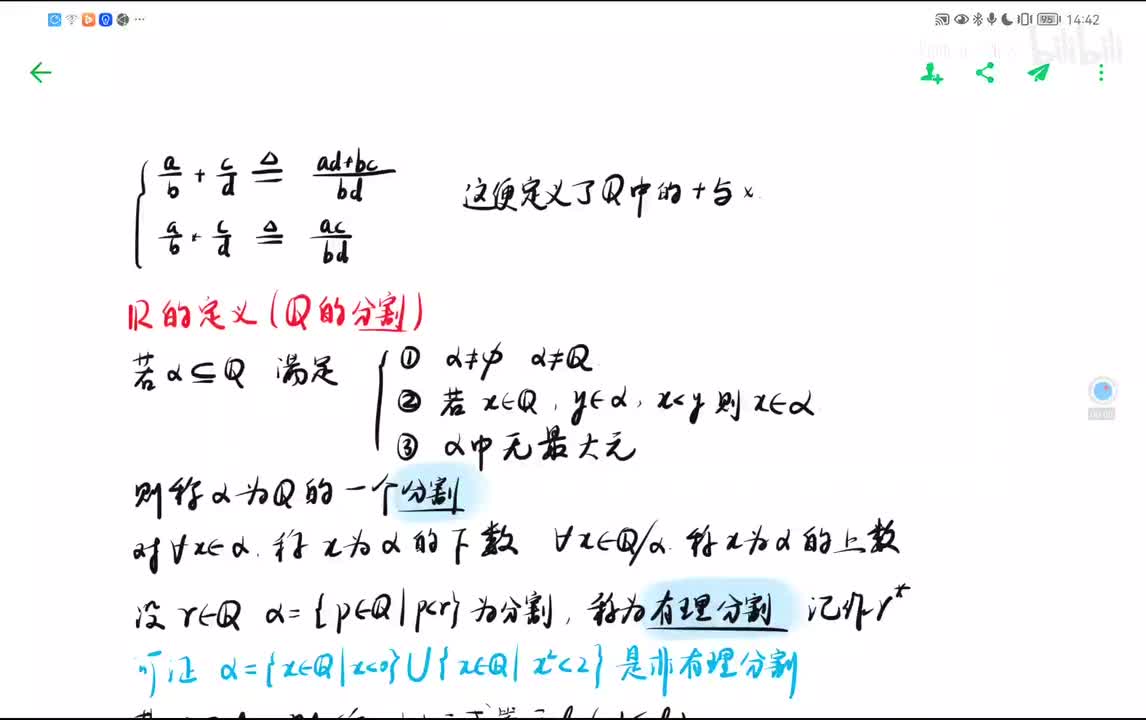 14:42
bilibili
a/b + c/d ≜ (ad+bc)/bd 这便定义了ℚ中的+与×.
a/b · c/d ≜ ac/bd
ℝ的定义(ℚ的分割)
若α⊆ℚ 满足 ① α≠φ α≠ℚ
② 若 x∈ℚ, y∈α, x<y 则 x∈α
③ α中无最大元
则称α为ℚ的一个分割
对∀x∈α. 称x为α的下数 ∀x∈ℚ/α. 称x为α的上数
设 r∈ℚ α={p∈ℚ|p<r}为分割, 称为有理分割 记作r*
可证 α={x∈ℚ|x<0}∪{x∈ℚ|x²<2}是非有理分割